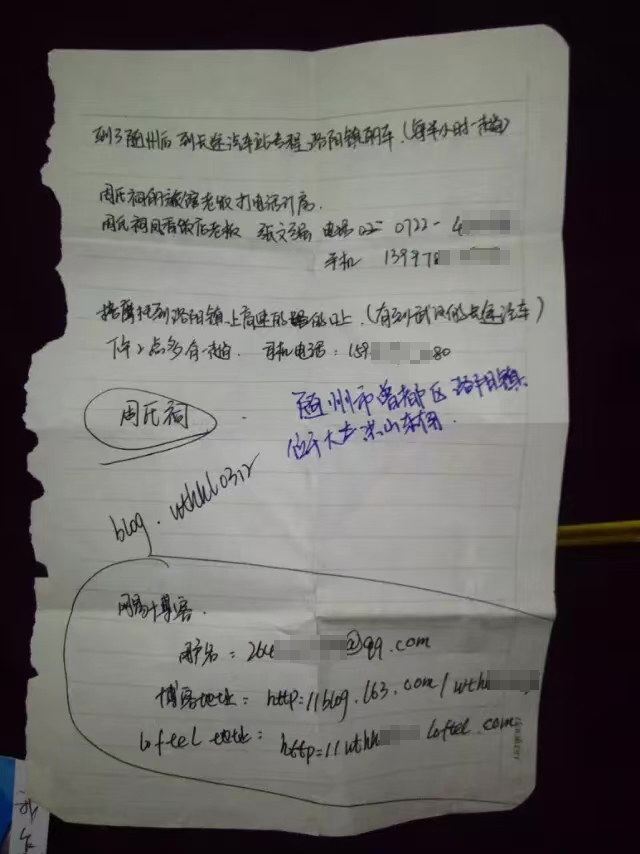 到了随州后 到长途汽车站专程 洛阳镇的车.(每半小时一趟)
周氏祠的旅馆老板打电话订房.
周氏祠风香饭店老板 张文强 电话 0722-4
手机 13997
洛阳镇上高速的路口上.(有到武汉的长途汽车)
下午2点多有一趟. 司机电话:159 80
周氏祠
随州市曾都区洛阳镇.
位于大洪山东南.
blog.wthhl0312
网易博客.
用户名:264 @qq.com
博客地址:http=11blog.163.com/wthh
Loftel 地址:http=11wthh loftel.com